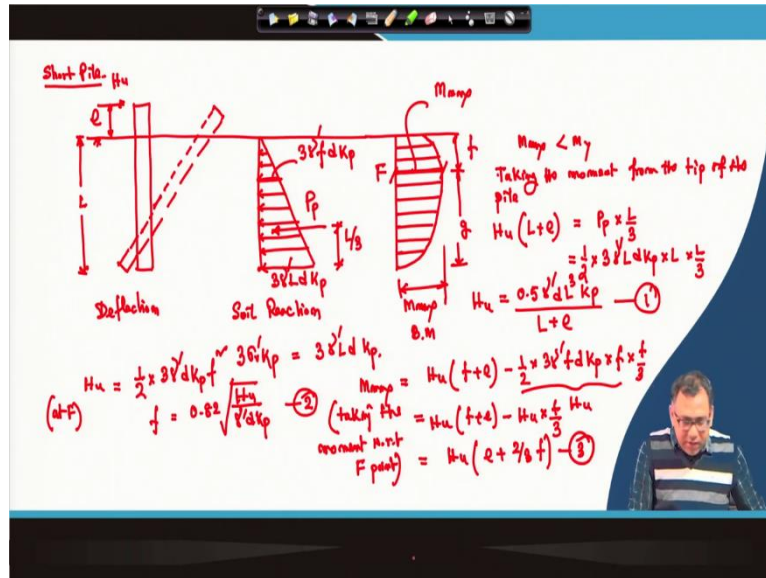 Short Pile
Hu
e
L
Deflection
3γ'f d Kp
Pp
L/3
3γ'L d Kp
Soil Reaction
Mmax
F
f
g
Mmax
B.M
Mmax < My
Taking the moment from the tip of the pile
Hu (L+e) = Pp × L/3
= 1/2 × 3γ'L d Kp × L × L/3
Hu = 0.5γ'd L³ Kp / L+e — ①
3σv' Kp = 3γ'L d Kp.
Hu = 1/2 × 3γ'd Kp f²
(at F)
f = 0.82 √(Hu / γ'd Kp) — ②
Mmax = Hu (f+e) - 1/2 × 3γ'f d Kp × f × f/3
Hu
(taking the moment w.r.t F point)
= Hu (f+e) - Hu × f/3
= Hu (e + 2/3 f) — ③